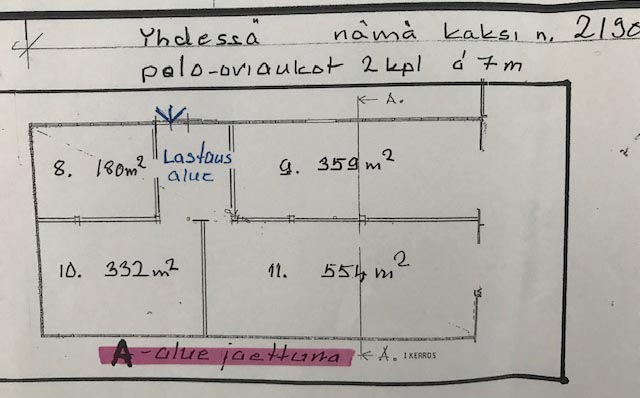 Yhdessä nämä kaksi n. 2190
palo-oviaukot 2 kpl á 7 m
A.
8. 180 m²
Lastaus
alue
9. 359 m²
10. 332 m²
11. 554 m²
A-alue jaettuna
A. I KERROS